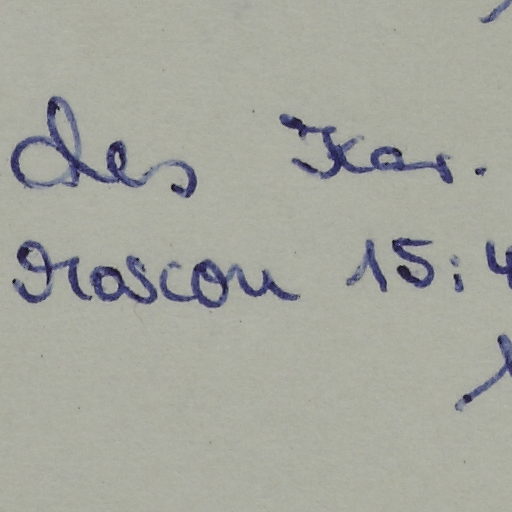 des Kar.
Mascou 15:4